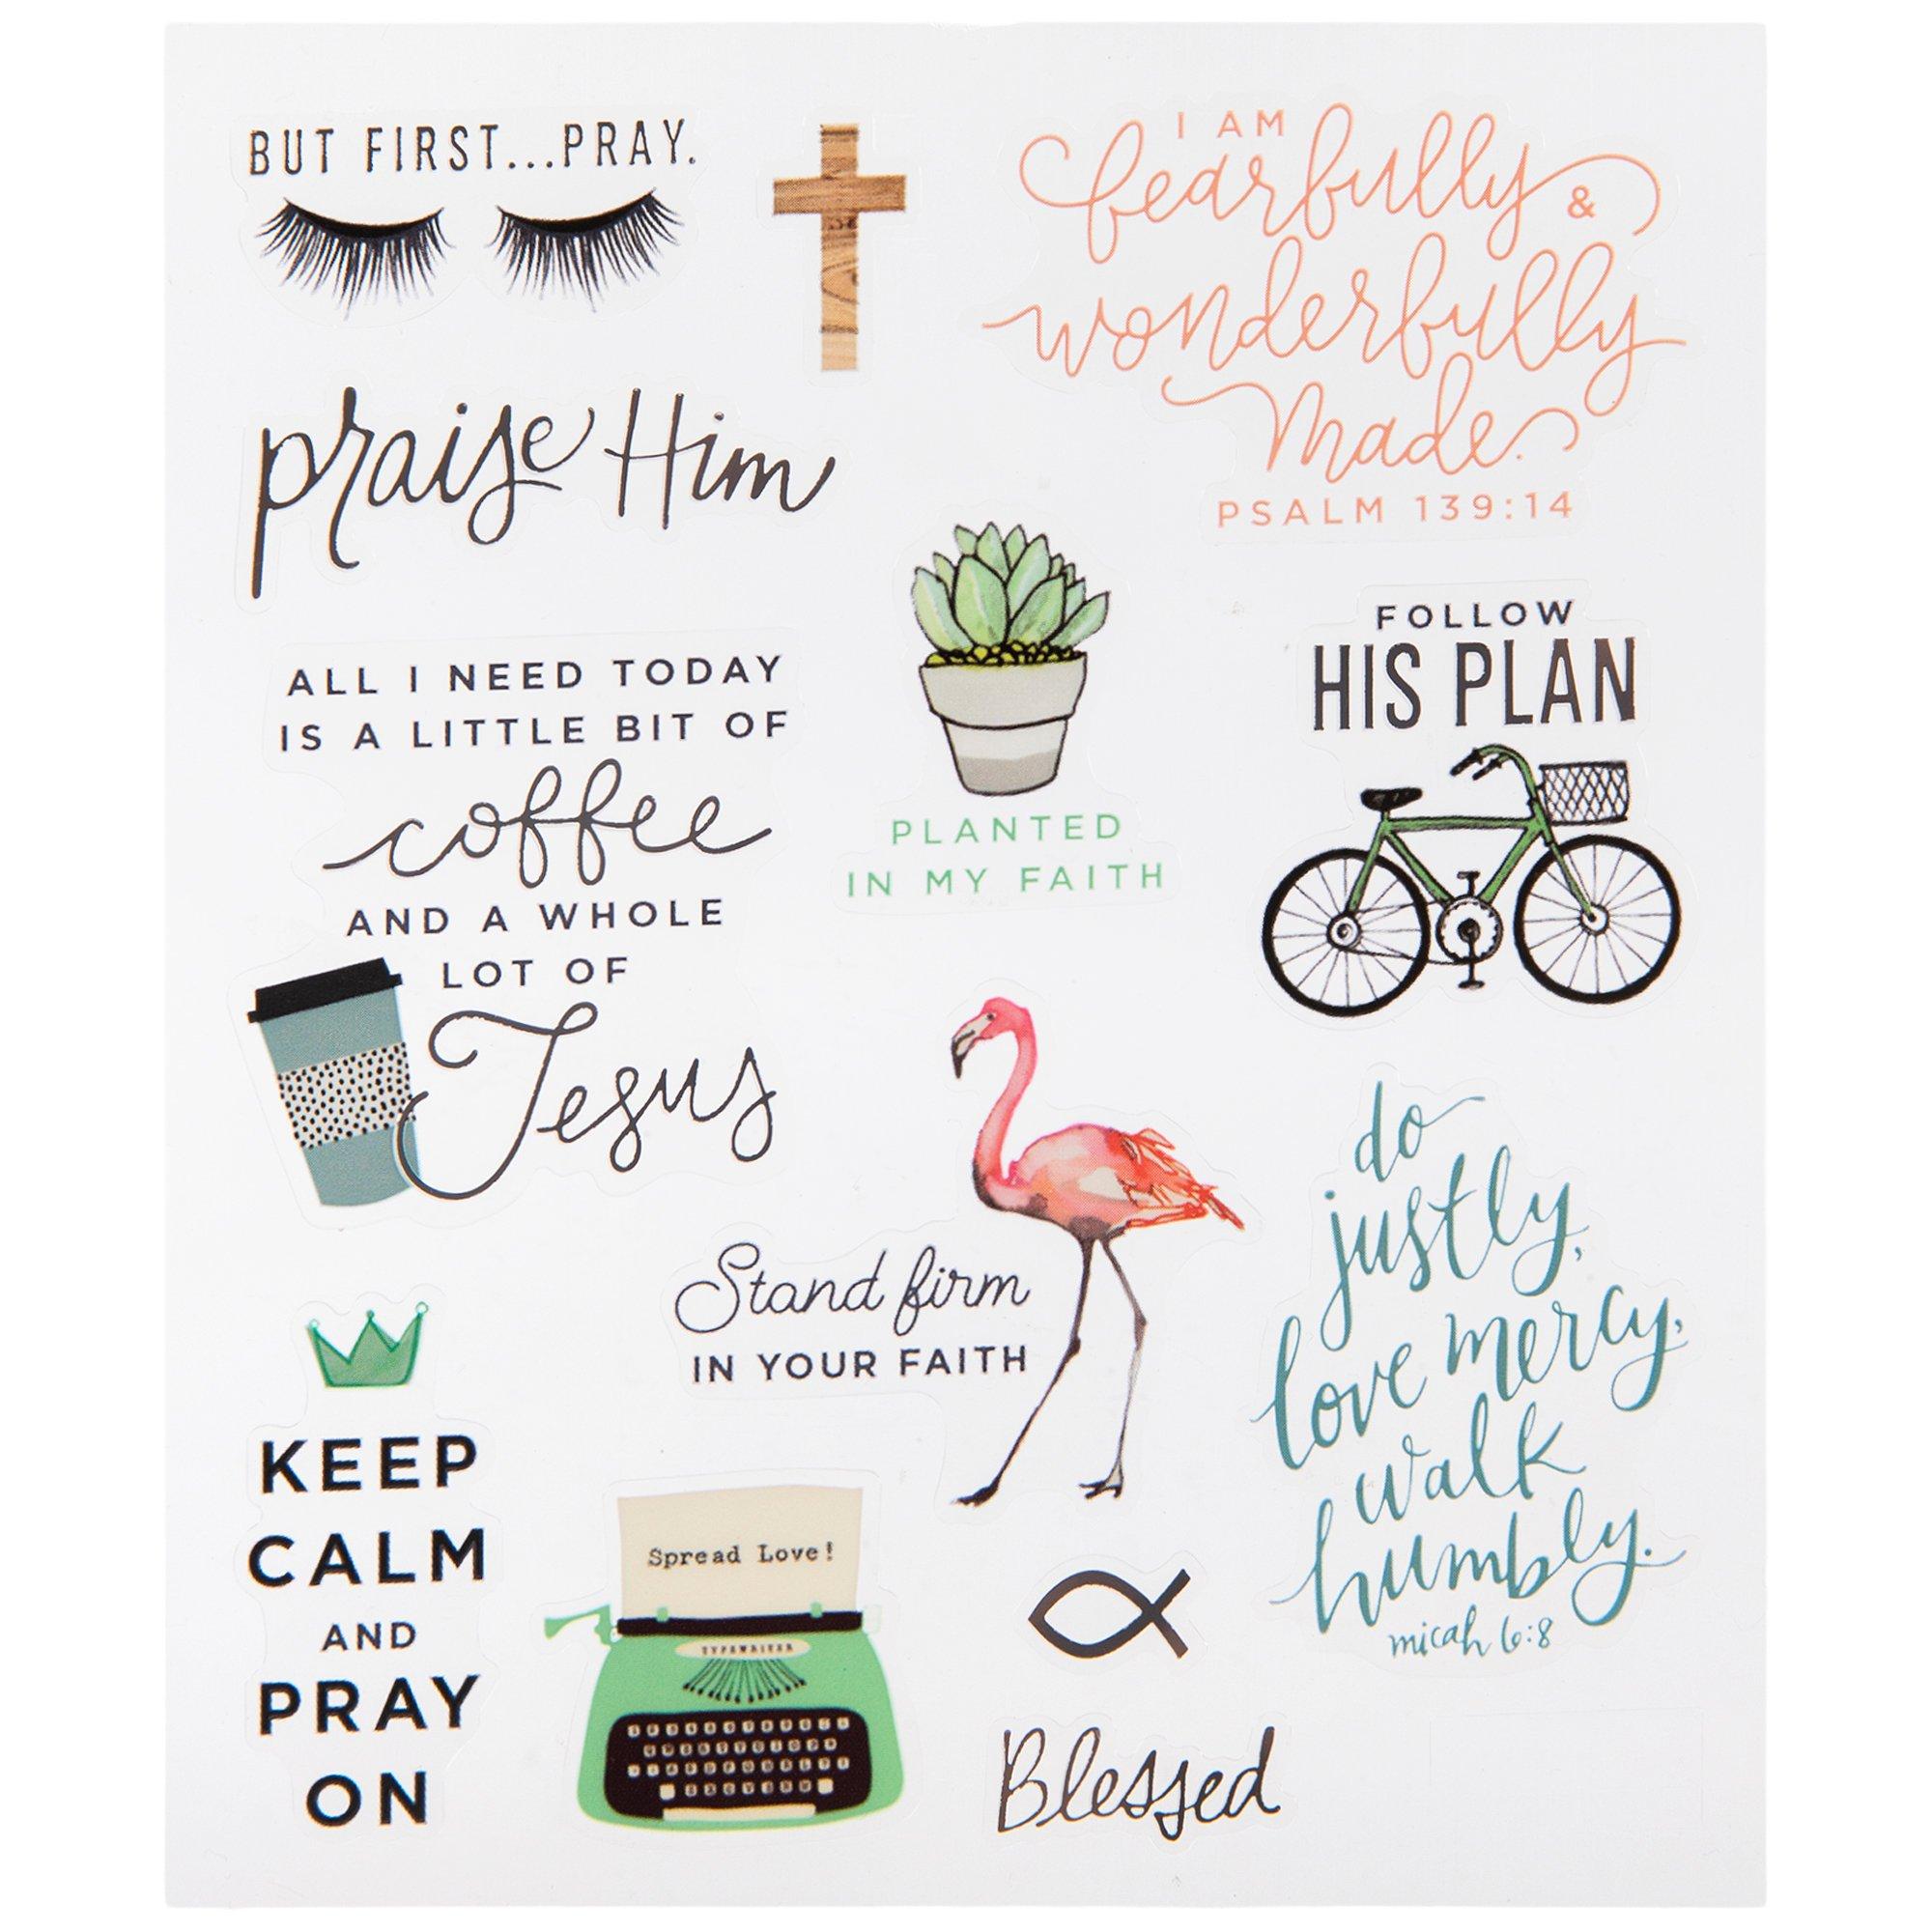 BUT FIRST...PRAY.
I AM
fearfully &
wonderfully
made.
PSALM 139:14
praise Him
ALL I NEED TODAY
IS A LITTLE BIT OF
coffee
AND A WHOLE
LOT OF
Jesus
PLANTED
IN MY FAITH
FOLLOW
HIS PLAN
Stand firm
IN YOUR FAITH
do
justly,
love mercy,
walk
humbly.
micah 6:8
KEEP
CALM
AND
PRAY
ON
Spread Love!
TYPEWRITER
Blessed